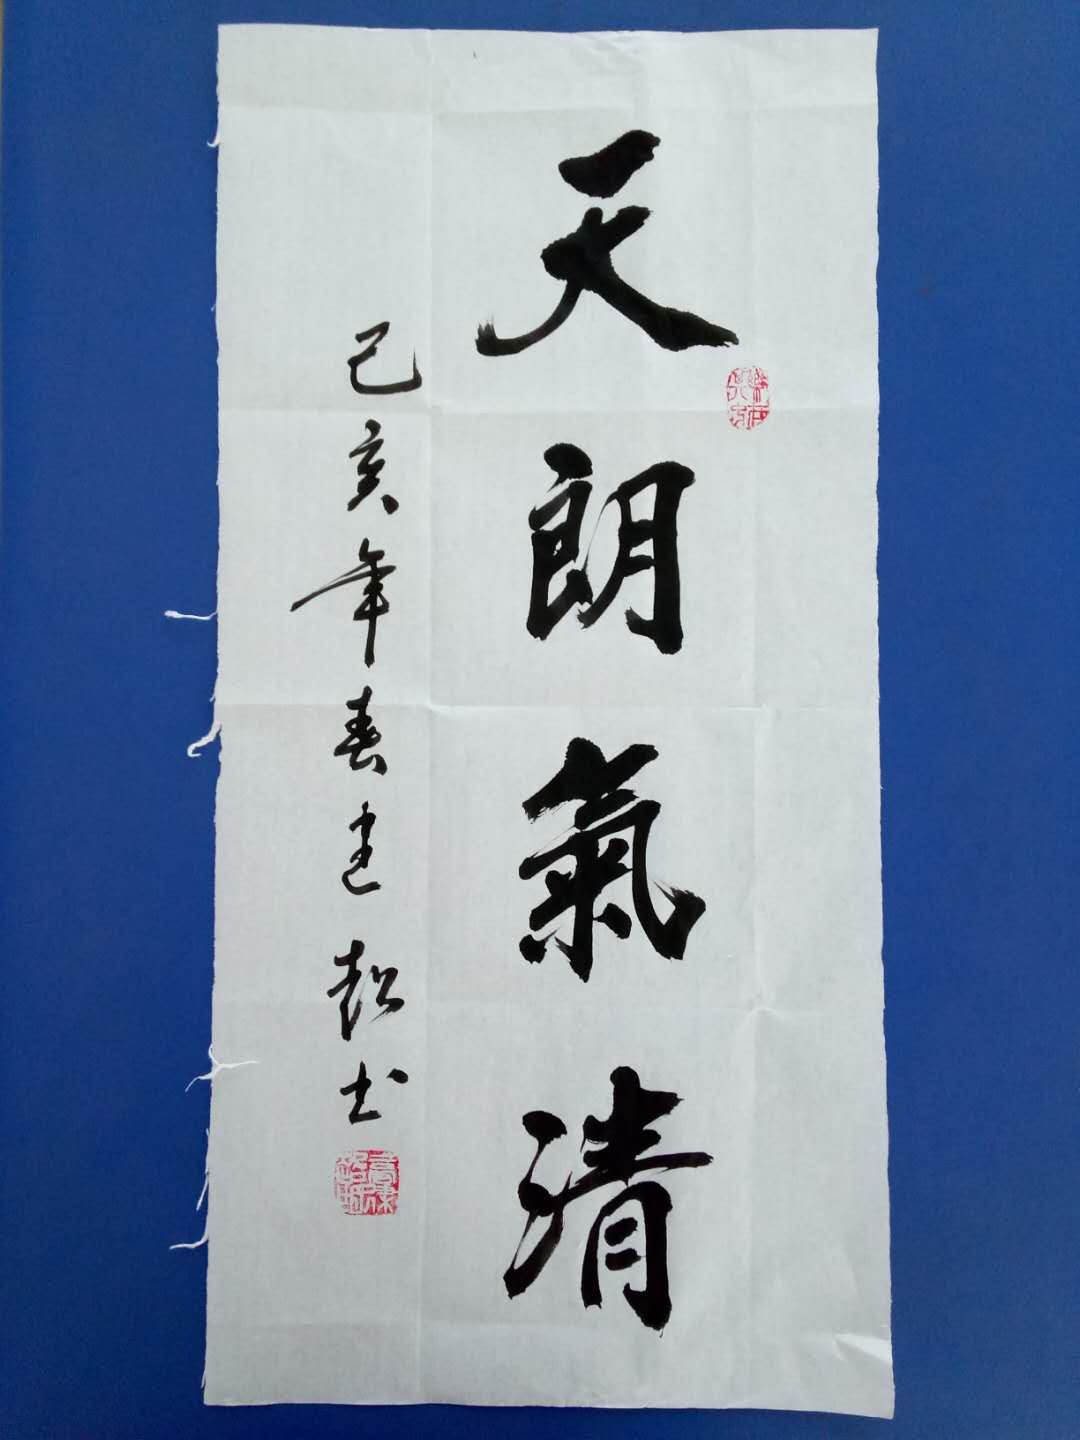 天朗氣清
己亥年春建超书